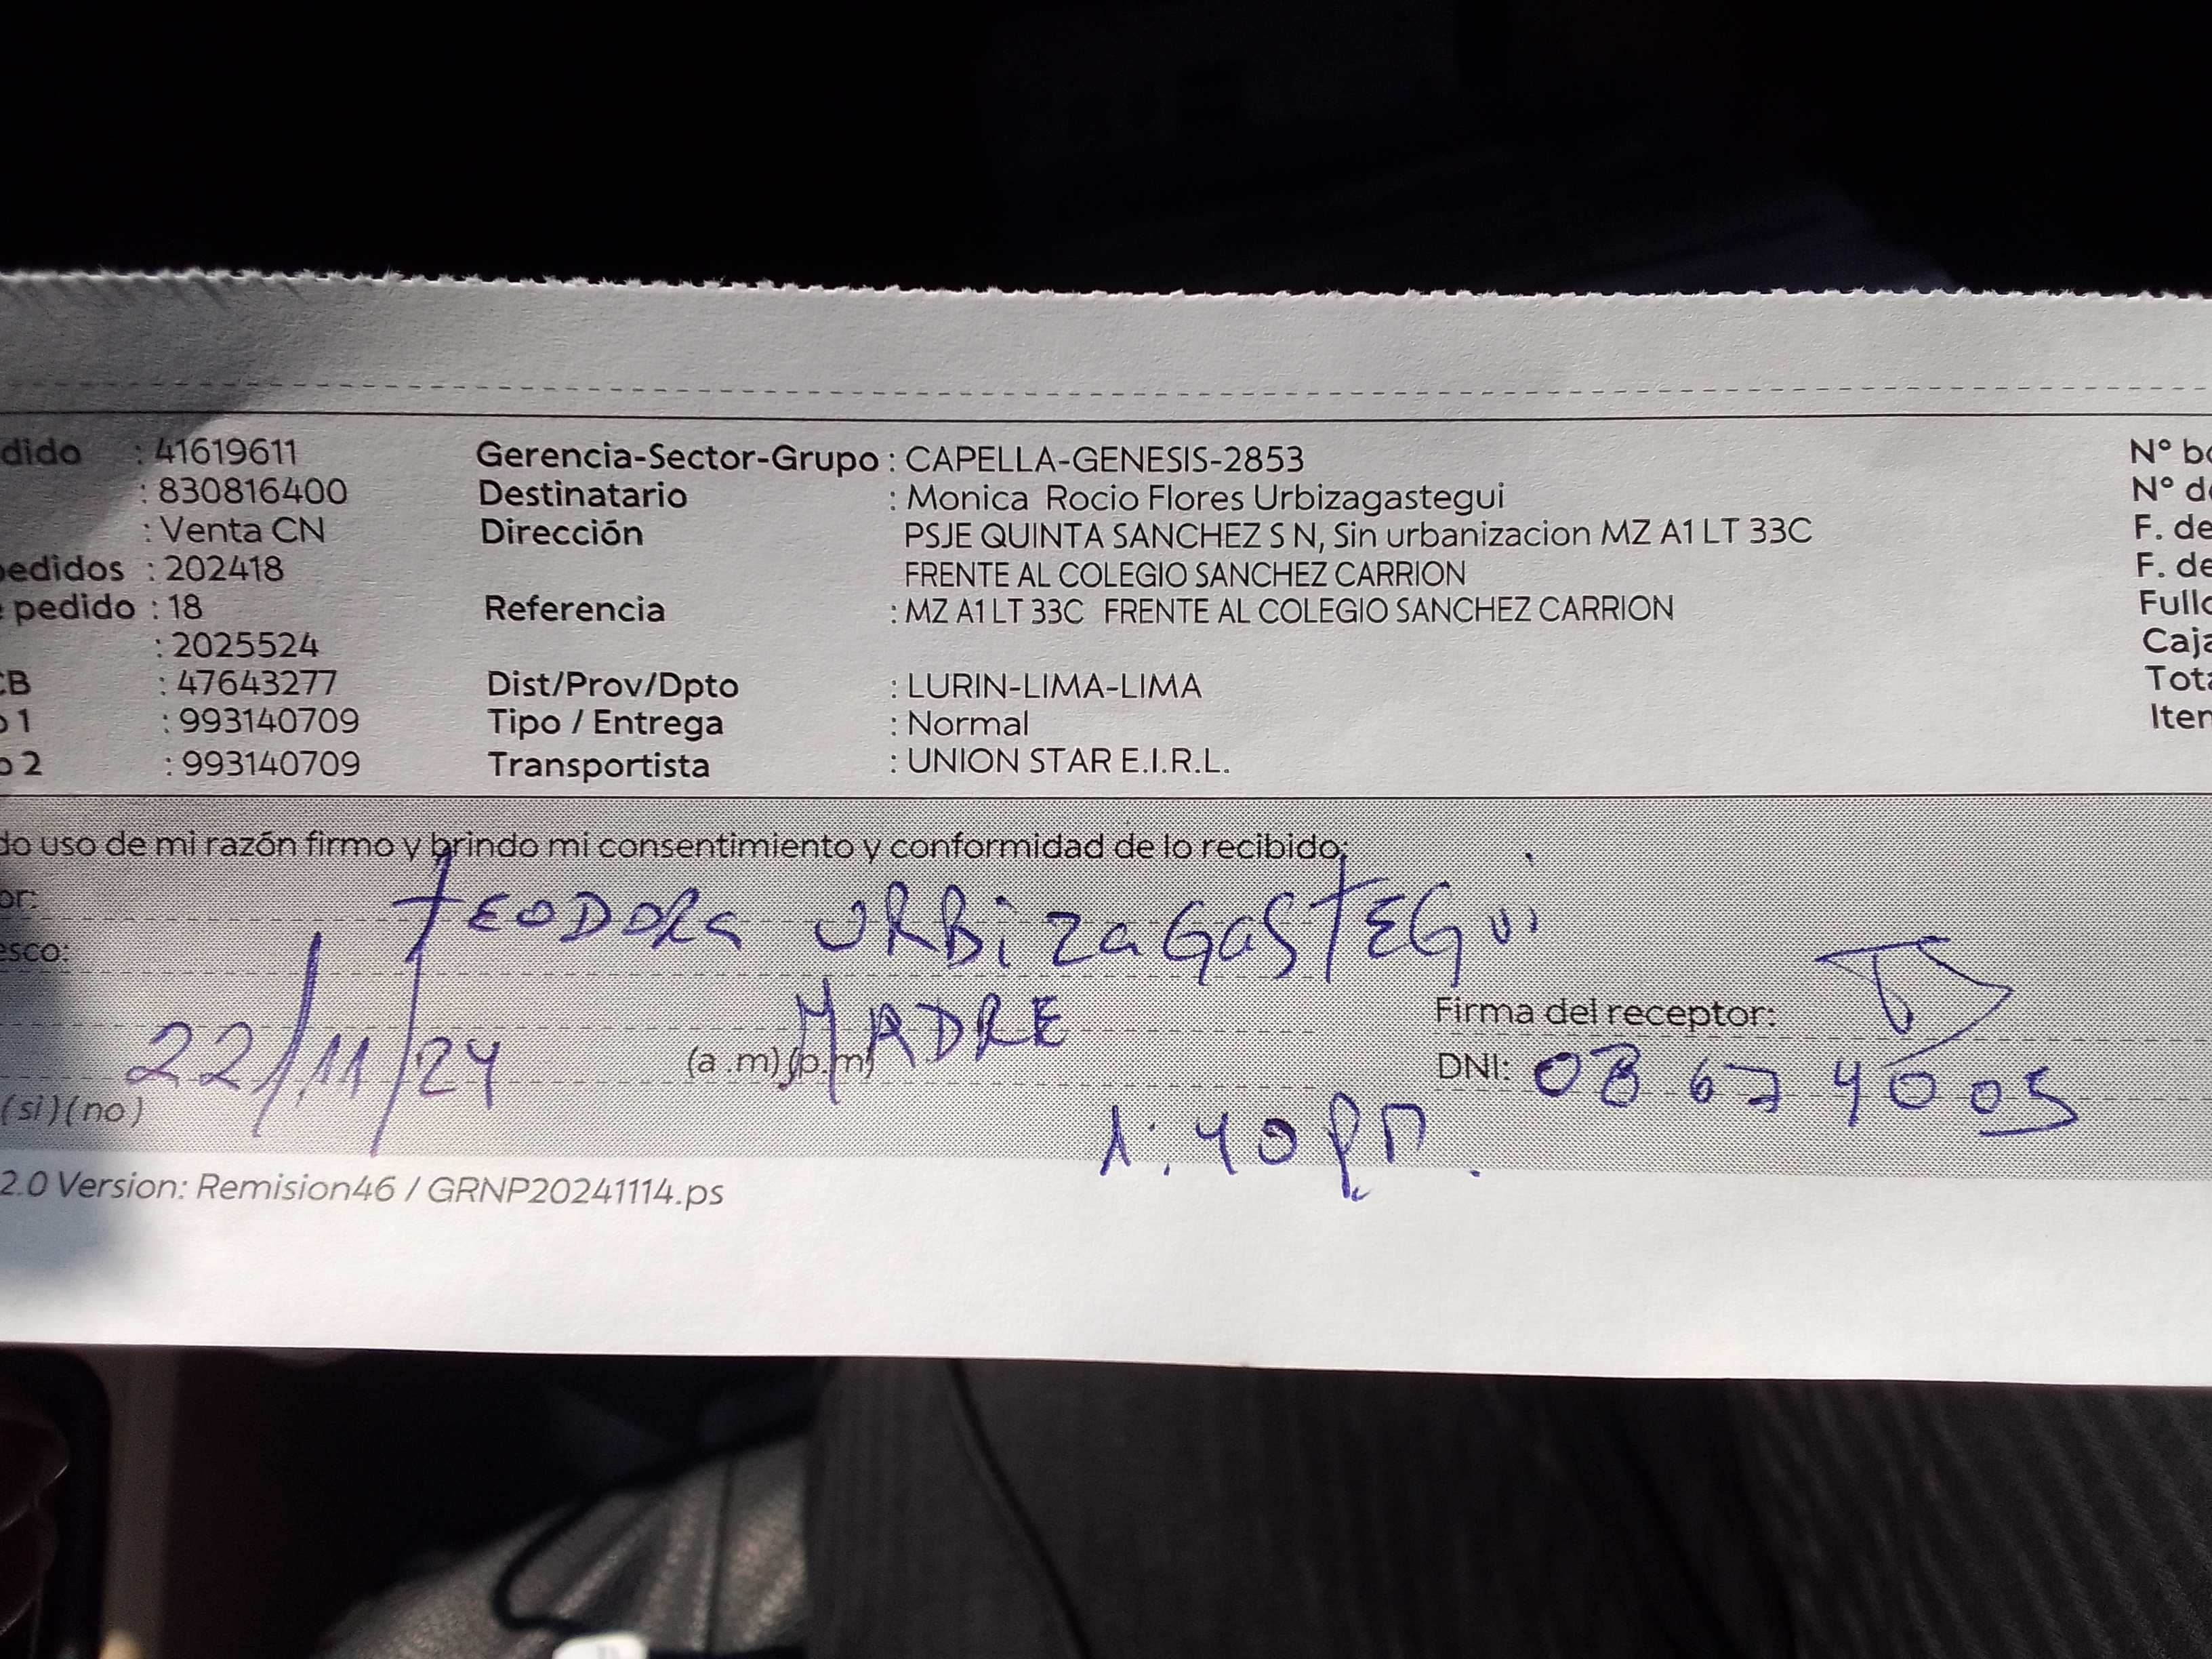 dido : 41619611 Gerencia-Sector-Grupo : CAPELLA-GENESIS-2853 N° bo
: 830816400 Destinatario : Monica Rocio Flores Urbizagastegui N° de
: Venta CN Dirección PSJE QUINTA SANCHEZ S N, Sin urbanizacion MZ A1 LT 33C F. de
pedidos : 202418 FRENTE AL COLEGIO SANCHEZ CARRION F. de
e pedido : 18 Referencia : MZ A1 LT 33C FRENTE AL COLEGIO SANCHEZ CARRION Fullc
: 2025524 Caja
CB : 47643277 Dist/Prov/Dpto : LURIN-LIMA-LIMA Tota
o 1 : 993140709 Tipo / Entrega : Normal Iten
o 2 : 993140709 Transportista : UNION STAR E.I.R.L.
do uso de mi razón firmo y brindo mi consentimiento y conformidad de lo recibido;
or: TEODORa URBizaGaSTEGui
esco: MADRE Firma del receptor:
22/11/24 (a .m) (p.m) DNI: 08674005
(si) (no) 1:40 Pm.
2.0 Version: Remision46 / GRNP20241114.ps